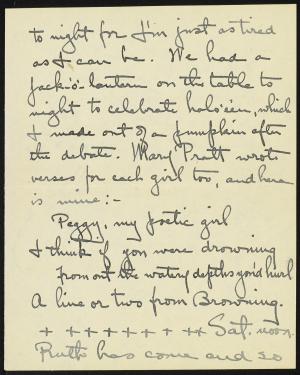 to night for I'm just as tired
as I can be. We had a
jack-o'-lantern on the table to
night to celebrate halo'een, which
I made out of a pumpkin after
the debate. Mary Pratt wrote
verses for each girl too, and here
is mine:-
Peggy, my poetic girl
I think if you were drowning
from out the watery depths you'd hurl
A line or two from Browning.
+ + + + + + ++ Sat. noon.
Ruth has come and so